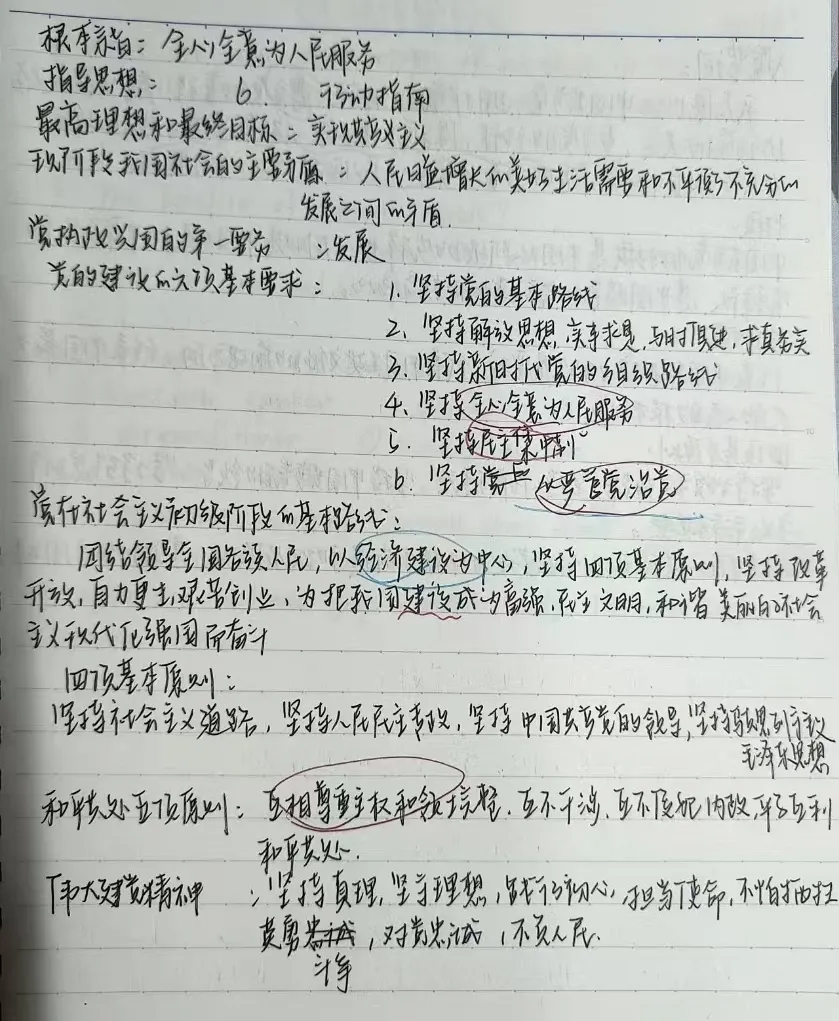 根本宗旨：全心全意为人民服务
指导思想：6. 行动指南
最高理想和最终目标：实现共产主义
现阶段我国社会的主要矛盾：人民日益增长的美好生活需要和不平衡不充分的
发展之间的矛盾.
党执政兴国的第一要务：发展
党的建设的六项基本要求：1. 坚持党的基本路线
2. 坚持解放思想,实事求是,与时俱进,求真务实
3. 坚持新时代党的组织路线
4. 坚持全心全意为人民服务
5. 坚持民主集中制
6. 坚持 从严管党治党
党在社会主义初级阶段的基本路线：
团结领导全国各族人民,以经济建设为中心,坚持四项基本原则,坚持改革
开放,自力更生,艰苦创业,为把我国建设成为富强,民主文明,和谐美丽的社会
主义现代化强国而奋斗
四项基本原则：
坚持社会主义道路,坚持人民民主专政,坚持中国共产党的领导,坚持马思列宁主义
毛泽东思想
和平共处五项原则：互相尊重主权和领土完整.互不干涉.互不侵犯内政,平等互利
和平共处.
伟大建党精神：坚持真理,坚守理想,践行初心,担当使命,不怕牺牲
英勇 ,对党忠诚,不负人民.
斗争